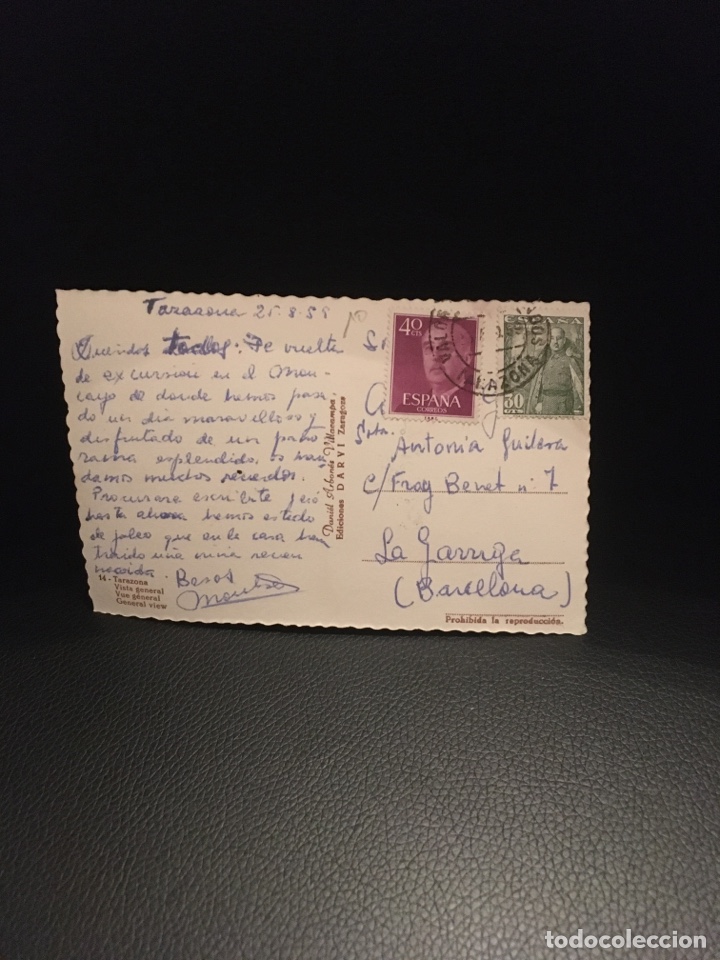 Tarazona 21-8-58
Queridos todos: De vuelta
de excursión en el Mon-
cayo de donde hemos pasa
do un dia maravilloso y
disfrutado de un pano
rama esplendido, os man
damos muchos recuerdos.
Procurare escribirte
hasta ahora hemos estado
de jaleo que en la casa han
traido una niña recien
nacida. Besos
Montse
14 - Tarazona
Vista general
Vue général
General view
Daniel Arbonés Villacampa.
Ediciones DARVI Zaragoza
40 CTS
ESPAÑA
CORREOS
ESPAÑA
50
TARAZONA
Srta.
Antonia Guilera
C/ Fray Benet n. 7
La Garriga
(Barcelona)
Prohibida la reproducción.
todocoleccion
todocoleccion.net